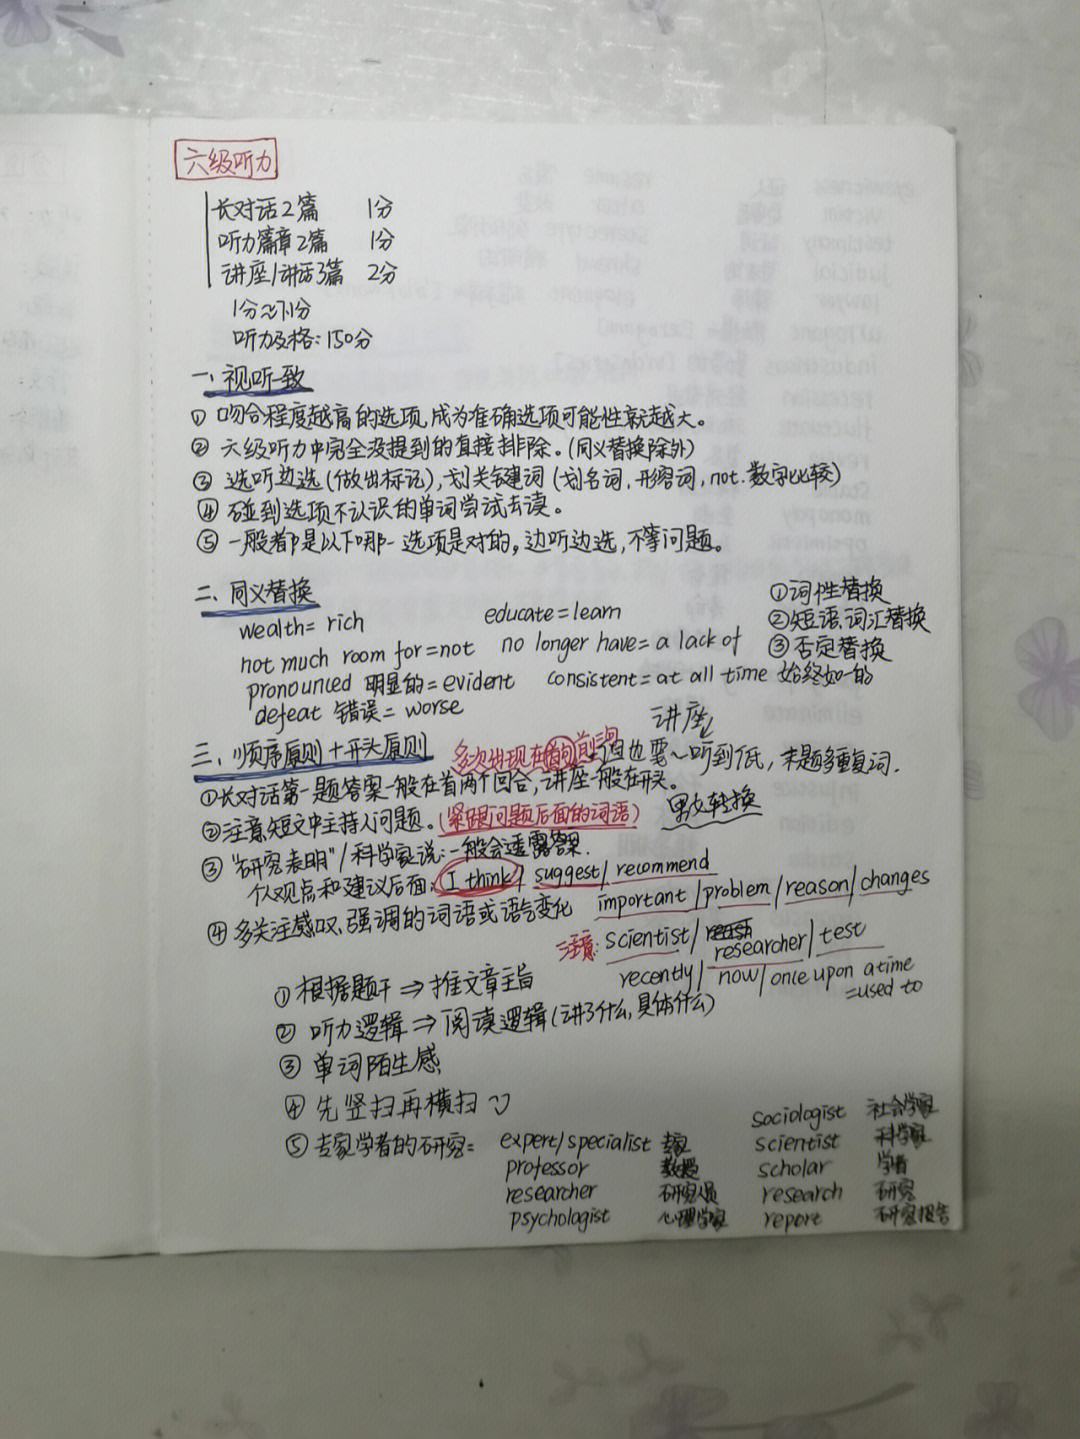 六级听力
长对话2篇 1分
听力篇章2篇 1分
讲座/讲话3篇 2分
1分≈7.1分
听力及格:150分
一、视听一致
① 吻合程度越高的选项,成为准确选项可能性就越大。
② 六级听力中完全没提到的直接排除。(同义替换除外)
③ 选听边选(做出标记),划关键词(划名词,形容词,not.数字比较)
④ 碰到选项不认识的单词尝试去读。
⑤ 一般都是以下哪一选项是对的,边听边选,不等问题。
二、同义替换
wealth= rich educate=learn
not much room for=not no longer have= a lack of
pronounced 明显的= evident consistent= at all time 始终如一的
defeat 错误= worse
①词性替换
②短语、词汇替换
③否定替换
三、顺序原则+开头原则
多次出现在首句前词
讲座
但也要~听到底,末题多重复词.
①长对话第一题答案一般在首两个回合,讲座一般在开头。
②注意短文中主持人问题。(紧跟问题后面的词语) 男女转换
③ "研究表明"/科学家说:一般会透露答案.
个人观点和建议后面: I think/ suggest/ recommend
④ 多关注感叹、强调的词语或语气变化 important /problem /reason/changes
注意: scientist/ researcher/ test
recently/ now/ once upon a time
=used to
① 根据题干⇒推文章主旨
② 听力逻辑⇒阅读逻辑(讲了什么,具体什么)
③ 单词陌生感
④ 先竖扫再横扫
⑤ 专家学者的研究: expert/specialist 专家
professor 教授
researcher 研究员
psychologist 心理学家
sociologist 社会学家
scientist 科学家
scholar 学者
research 研究
report 研究报告